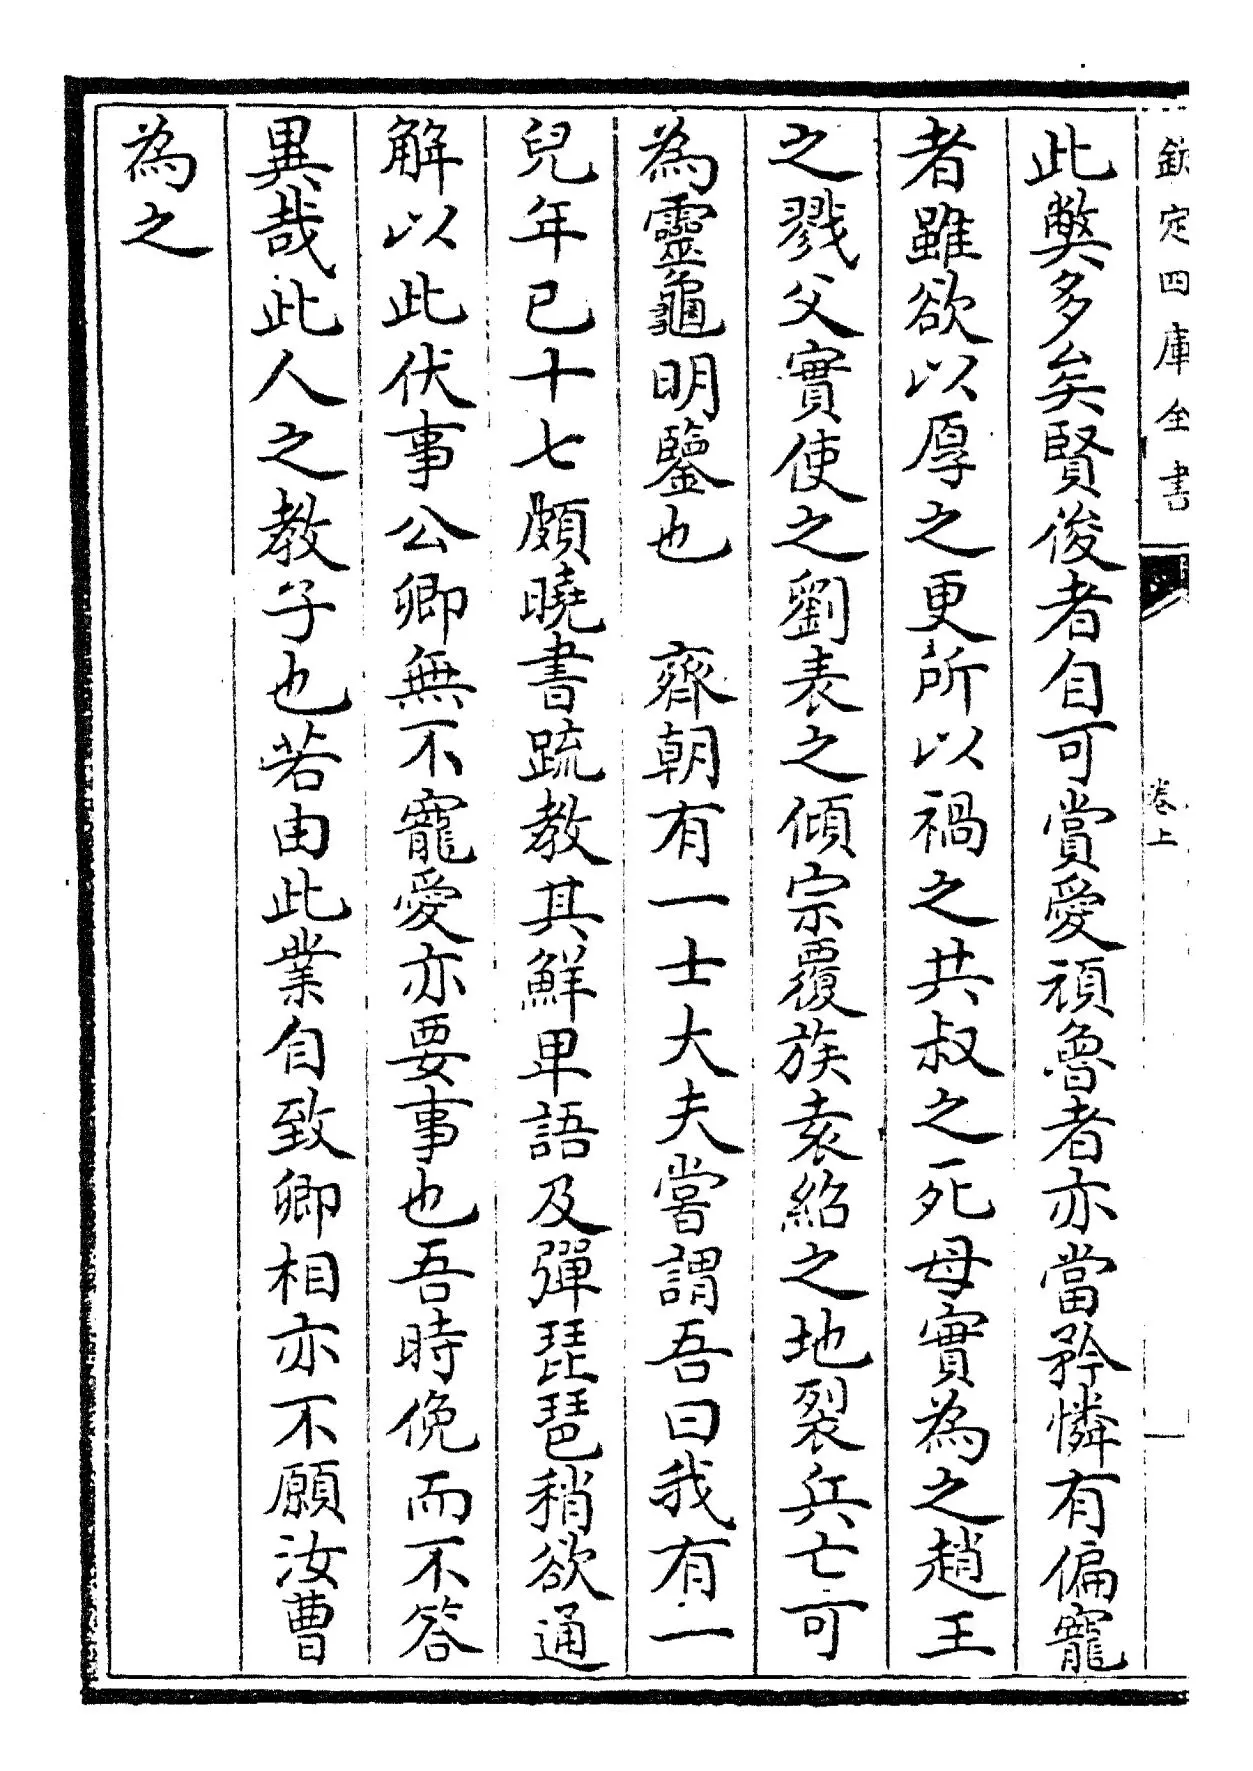 欽定四庫全書
卷上
此弊多矣賢俊者自可賞愛頑魯者亦當矜憐有偏寵
者雖欲以厚之更所以禍之共叔之死母實為之趙王
之戮父實使之劉表之傾宗覆族袁紹之地裂兵亡可
為靈龜明鑒也 齊朝有一士大夫嘗謂吾曰我有一
兒年已十七頗曉書疏教其鮮卑語及彈琵琶稍欲通
解以此伏事公卿無不寵愛亦要事也吾時俛而不答
異哉此人之教子也若由此業自致卿相亦不願汝曹
為之